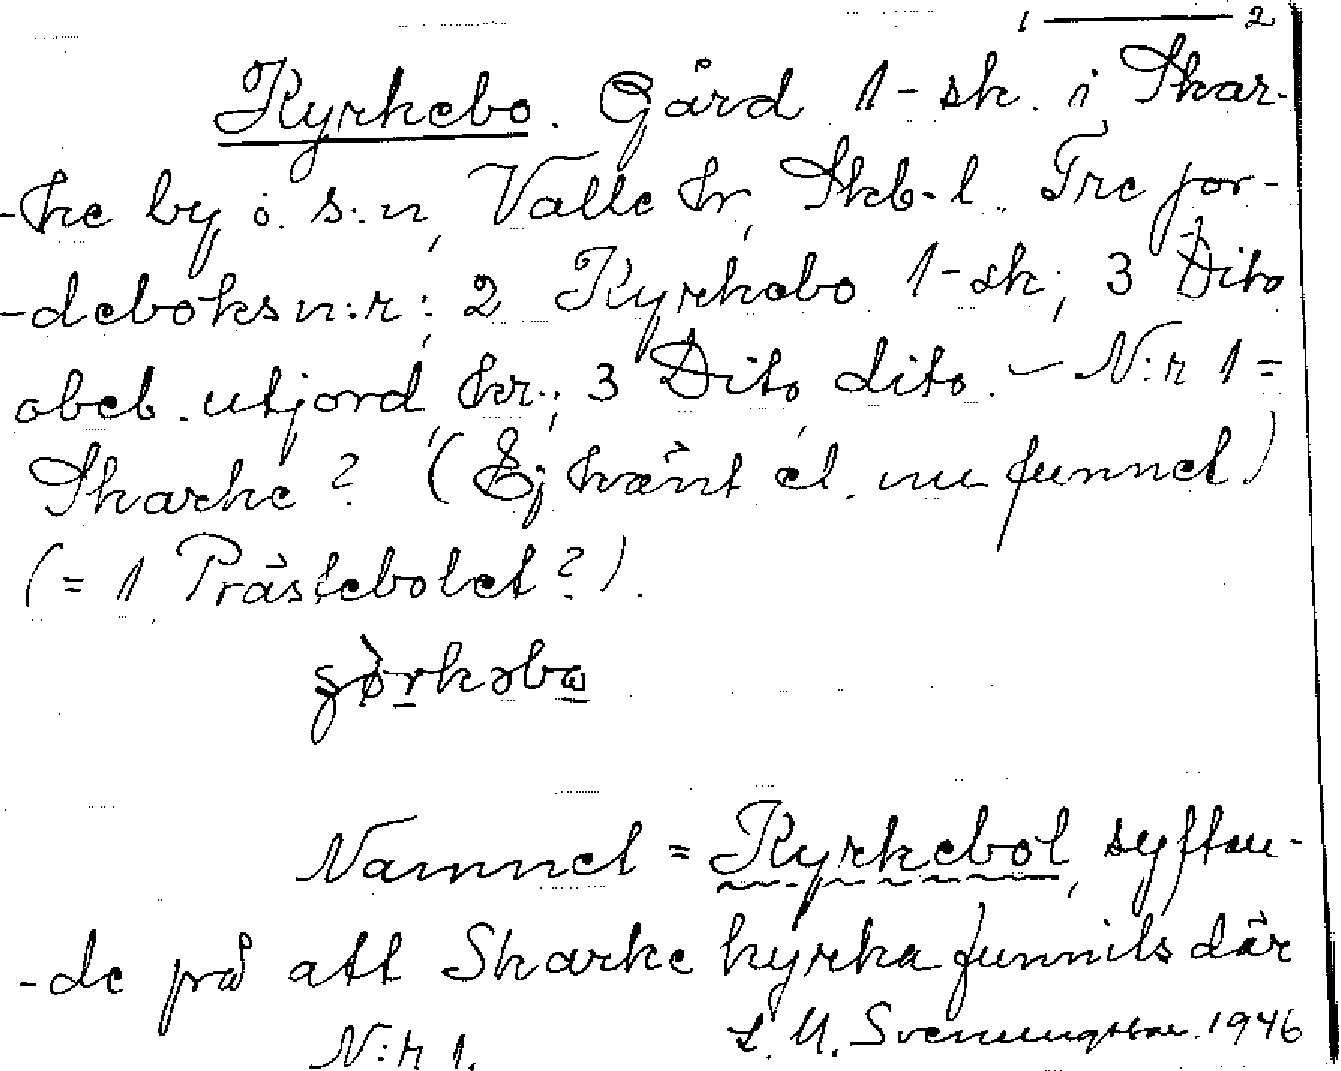 1 — 2
Kyrkebo. Gård 1-sk. i Skar-
-ke by o. s:n, Valle hr, Skb-l. Tre jor-
-deboksn:r: 2 Kyrkebo 1-sk; 3 Dito
obeb. utjord, kr.; 3 Dito, dito. — N:r 1 =
Skarke? (Ej känt el. nu funnet)
(= 1 Prästebolet?).
Namnet = Kyrkebol, syftan-
-de på att Skarke kyrka funnits där
N:r 1. L. M. Svenungsson 1946